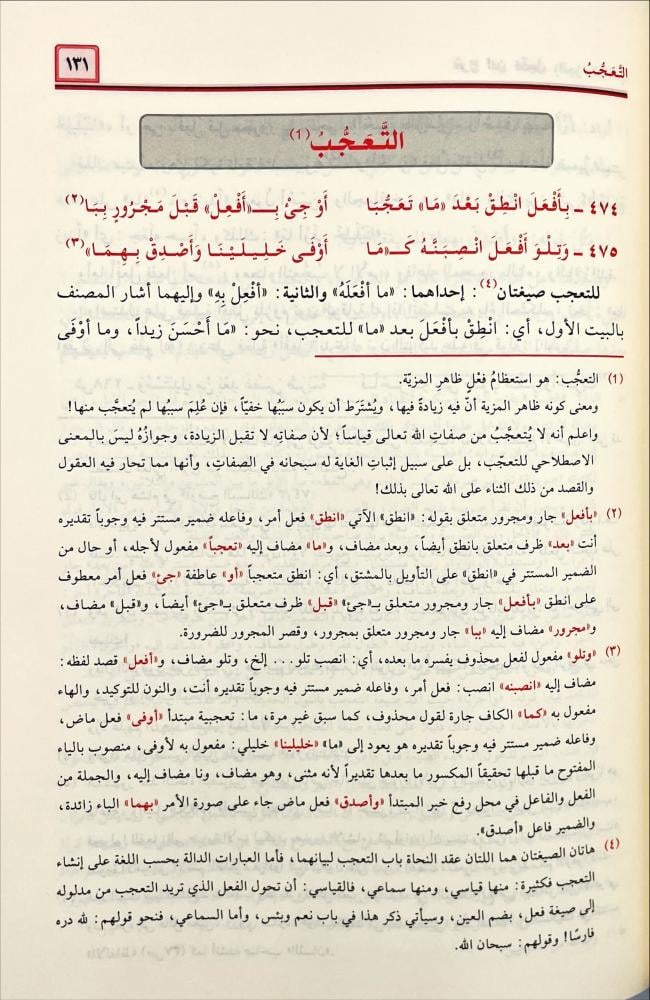 التَّعَجُّبُ
١٣١
التَّعَجُّبُ (١)
٤٧٤ ـ بِأَفْعَلَ انْطِقْ بَعْدَ «مَا» تَعَجُّبَا أَوْ جِئْ بِــ«أَفْعِلْ» قَبْلَ مَجْرُورٍ بِبَا(٢)
٤٧٥ ـ وَتِلْوَ أَفْعَلَ انْصِبَنَّهُ كَــ«مَا أَوْفَى خَلِيلَيْنَا وَأَصْدِقْ بِهِمَا»(٣)
للتعجب صيغتان(٤): إحداهما: «ما أفْعَلَهُ» والثانية: «أَفْعِلْ بِهِ» وإليهما أشار المصنف
بالبيت الأول، أي: انْطِقْ بأفعَلَ بعد «ما» للتعجب، نحو: «مَا أَحْسَنَ زيداً، وما أوْفَى
(١) التعجُّب: هو استعظامُ فعْلٍ ظاهرِ المزيّة.
ومعنى كونه ظاهر المزية أنّ فيه زيادةً فيها، ويُشْتَرَط أن يكون سببُها خفيّاً، فإن عُلِمَ سببُها لم يُتعجَّب منها!
واعلم أنه لا يُتعجَّبُ من صفاتِ الله تعالى قياساً؛ لأن صفاتِه لا تقبل الزيادة، وجوازُهُ ليسَ بالمعنى
الاصطلاحي للتعجّب، بل على سبيل إثباتِ الغاية له سبحانه في الصفاتِ، وأنها مما تحار فيه العقول
والقصد من ذلك الثناء على الله تعالى بذلك!
(٢) «بأفعل» جار ومجرور متعلق بقوله: «انطق» الآتي «انطق» فعل أمر، وفاعله ضمير مستتر فيه وجوباً تقديره
أنت «بعد» ظرف متعلق بانطق أيضاً، وبعد مضاف، و«ما» مضاف إليه «تعجباً» مفعول لأجله، أو حال من
الضمير المستتر في «انطق» على التأويل بالمشتق، أي: انطق متعجباً «أو» عاطفة «جئ» فعل أمر معطوف
على انطق «بأفعل» جار ومجرور متعلق بـ«جئ» «قبل» ظرف متعلق بـ«جئ» أيضاً، و«قبل» مضاف،
و«مجرور» مضاف إليه «ببا» جار ومجرور متعلق بمجرور، وقصر المجرور للضرورة.
(٣) «وتلو» مفعول لفعل محذوف يفسره ما بعده، أي: انصب تلو... إلخ، وتلو مضاف، و«أفعل» قصد لفظه:
مضاف إليه «انصبنه» انصب: فعل أمر، وفاعله ضمير مستتر فيه وجوباً تقديره أنت، والنون للتوكيد، والهاء
مفعول به «كما» الكاف جارة لقول محذوف، كما سبق غير مرة، ما: تعجبية مبتدأ «أوفى» فعل ماض،
وفاعله ضمير مستتر فيه وجوباً تقديره هو يعود إلى «ما» «خليلينا» خليلي: مفعول به لأوفى، منصوب بالياء
المفتوح ما قبلها تحقيقاً المكسور ما بعدها تقديراً لأنه مثنى، وهو مضاف، ونا مضاف إليه، والجملة من
الفعل والفاعل في محل رفع خبر المبتدأ «وأصدق» فعل ماض جاء على صورة الأمر «بهما» الباء زائدة،
والضمير فاعل «أصدق».
(٤) هاتان الصيغتان هما اللتان عقد النحاة باب التعجب لبيانهما، فأما العبارات الدالة بحسب اللغة على إنشاء
التعجب فكثيرة: منها قياسي، ومنها سماعي، فالقياسي: أن تحول الفعل الذي تريد التعجب من مدلوله
إلى صيغة فعل، بضم العين، وسيأتي ذكر هذا في باب نعم وبئس، وأما السماعي، فنحو قولهم: لله دره
فارسًا! وقولهم: سبحان الله.